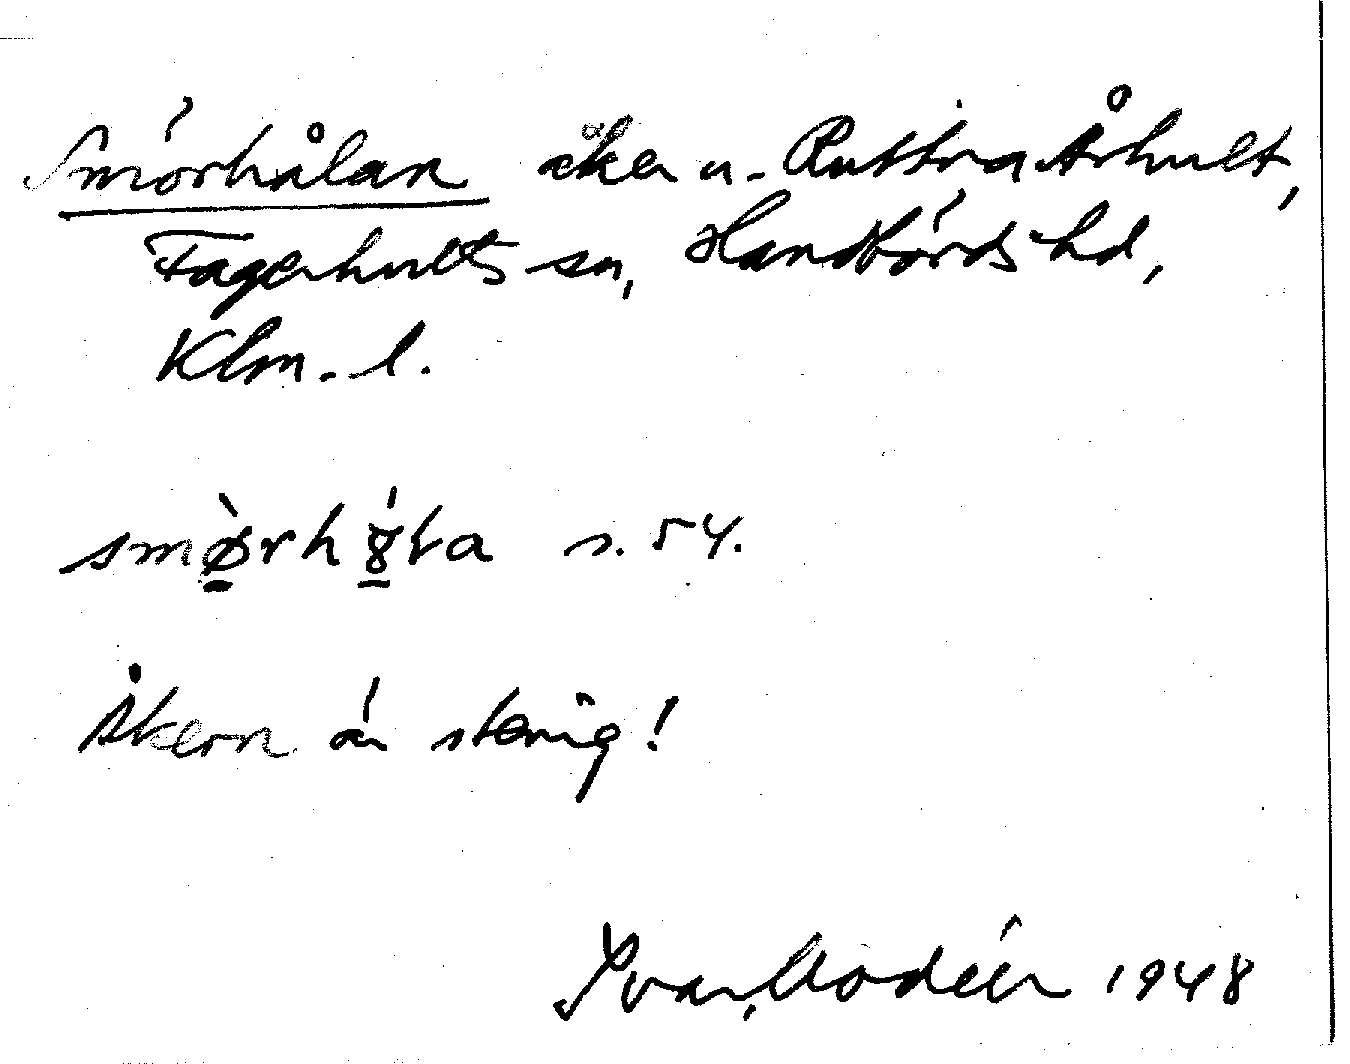 Smörhålan åker u. Ruttra Århult,
Fagerhults sn, Handbörds hd,
Klm. l.
s. 54.
Åkern är stenig!
Ivar Modéer 1948